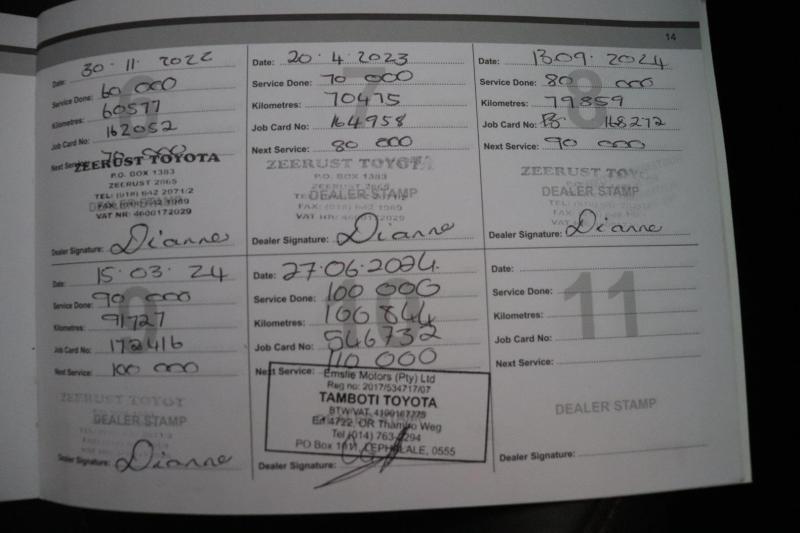 14
6
Date: 30·11·2022
Service Done: 60 000
Kilometres: 60577
Job Card No: 162052
Next Service: 70 000
ZEERUST TOYOTA
P.O. BOX 1383
ZEERUST 2865
TEL: (018) 642 2071/2
FAX: (018) 642 1989
VAT NR: 4600172029
Dealer Signature: Dianne
7
Date: 20·4·2023
Service Done: 70 000
Kilometres: 70475
Job Card No: 164958
Next Service: 80 000
ZEERUST TOYOTA
P.O. BOX 1383
ZEERUST 2865
DEALER STAMP
FAX: (018) 642 1989
VAT NR: 4600172029
Dealer Signature: Dianne
8
Date: 1309·2024
Service Done: 80 000
Kilometres: 79859
Job Card No: 168272
Next Service: 90 000
ZEERUST TOYOTA
DEALER STAMP
Dealer Signature: Dianne
9
Date: 15·03·24
Service Done: 90 000
Kilometres: 91727
Job Card No: 172416
Next Service: 100 000
ZEERUST TOYOT
DEALER STAMP
Dealer Signature: Dianne
10
Date: 27·06·2024
Service Done: 100 000
Kilometres: 100844
Job Card No: 546732
Next Service: 110 000
Emslie Motors (Pty) Ltd
Reg no: 2017/534717/07
TAMBOTI TOYOTA
BTW/VAT
Erf 4722, OR Thambo Weg
Tel (014) 763
PO Box LEPHALALE, 0555
Dealer Signature:
11
Date:
Service Done:
Kilometres:
Job Card No:
Next Service:
DEALER STAMP
Dealer Signature: